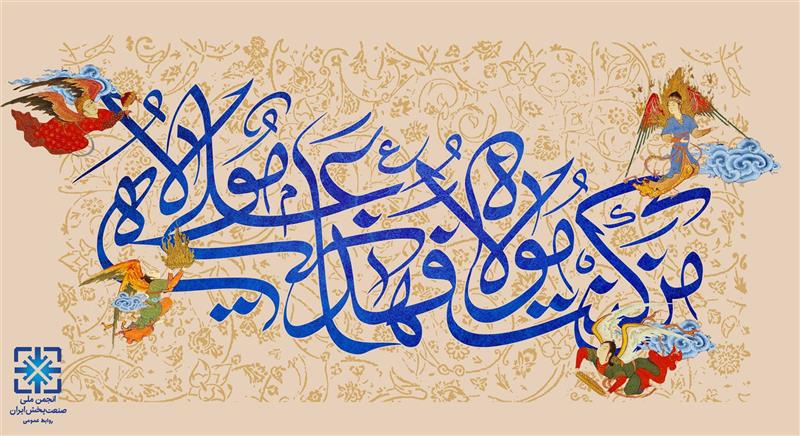 من کنت مولاه فهذا علی مولاه
انجمن ملی
صنعت پخش ایران
روابط عمومی